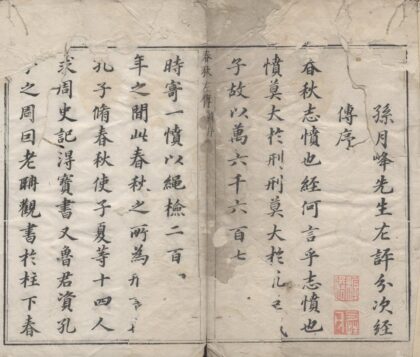 孫月峰先生左評分次經
傳序
春秋志憤也經何言乎志憤也
憤莫大於刑刑莫大於
子故以萬六千六百七
春秋左傳
時寄一憤以繩檢二百
年之間此春秋之所為
孔子脩春秋使子夏等十四人
求周史記得寶書又魯君資孔
子之周回老聃觀書於柱下春